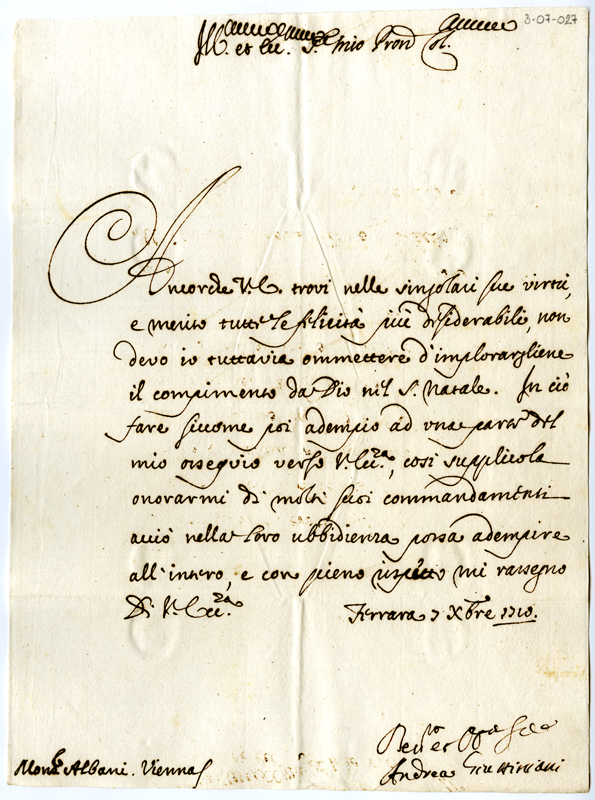 3-07-027
Ill.mo et Ecc. S.r mio Pron Col.mo
Ancorche V.E. trovi nelle singolari sue virtù,
e merito tutte le felicità più desiderabili, non
devo io tuttavia ommettere d'implorargliene
il compimento da Dio nel S. Natale. In ciò
fare siccome poi adempio ad una parte del
mio ossequio verso V. Ecc.za, così supplicola
onorarmi di molti suoi commandamenti
acciò nella loro ubbidienza possa adempire
all'intero, e con pieno rispetto mi rassegno
Di V. Ecc.za Ferrara 7 Xbre 1710.
Mons.r Albani. Vienna
Andrea Giustiniani